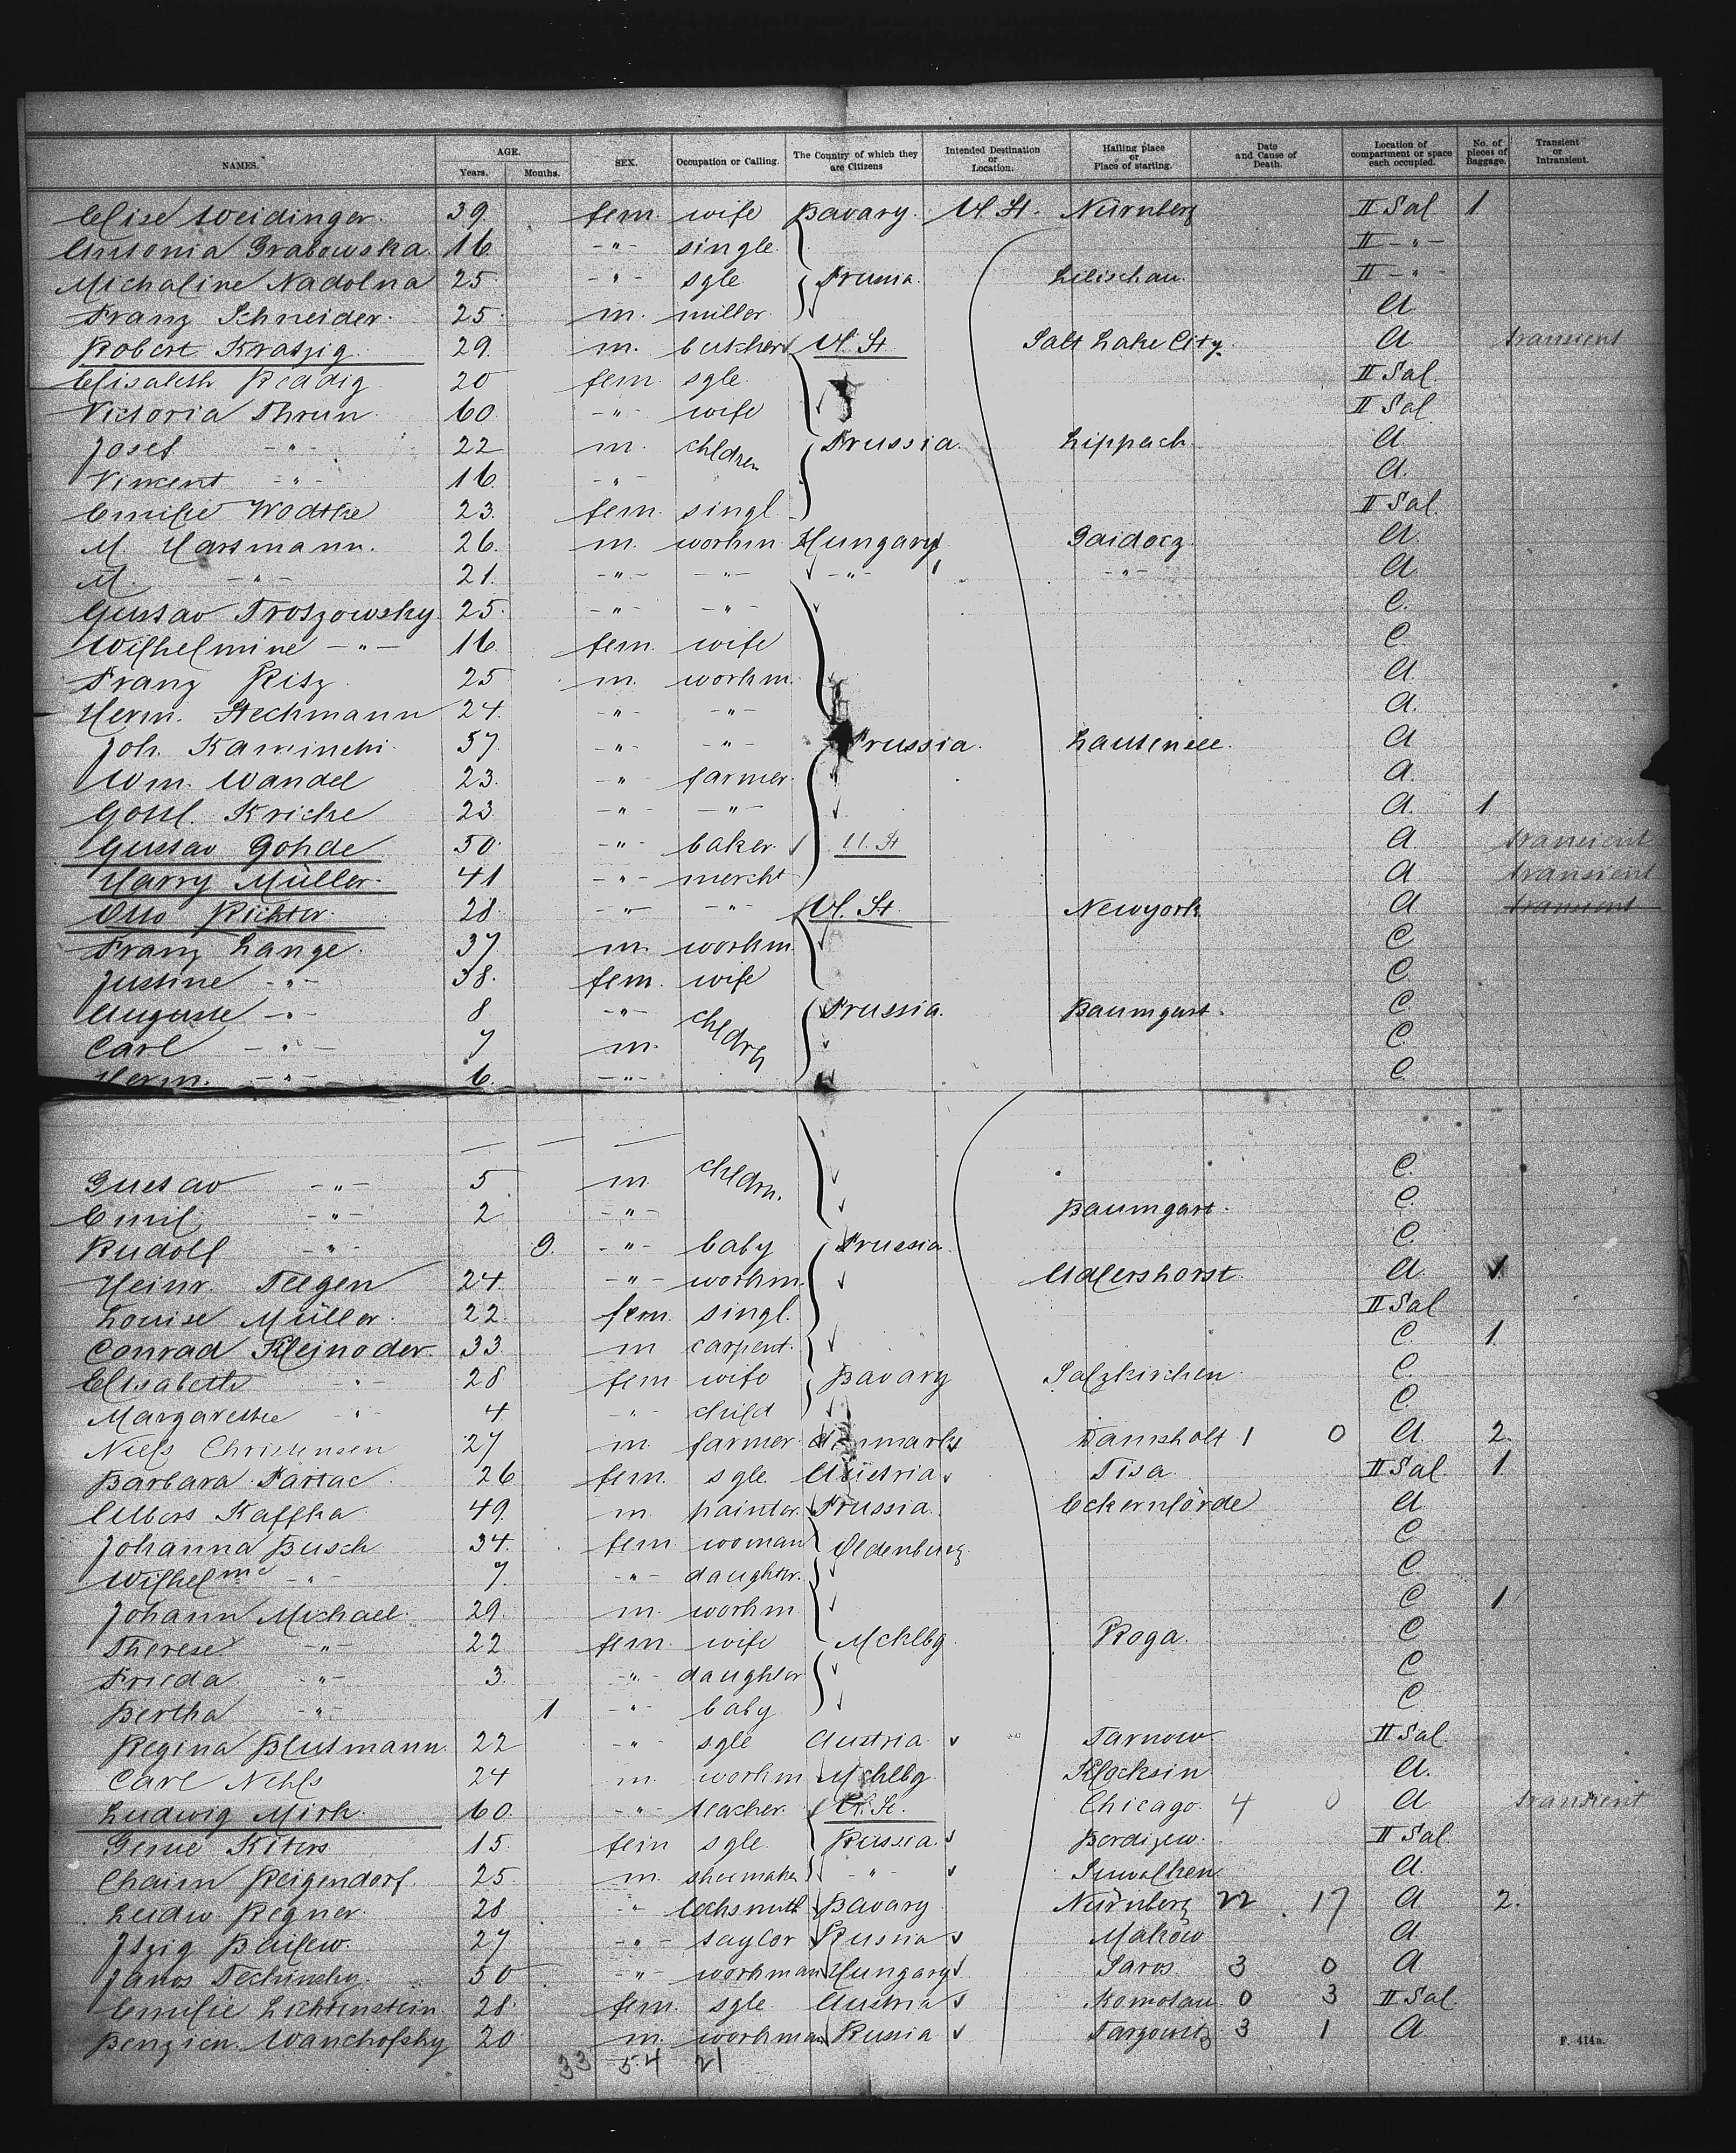 NAMES. AGE. Years. Months. SEX. Occupation or Calling. The Country of which they are Citizens Intended Destination or Location. Hailing place or Place of starting. Date and Cause of Death. Location of compartment or space each occupied. No. of pieces of Baggage. Transient or Intransient.
Elise Weidinger 39 fem. wife Bavary. U. St. Nürnberg II Sal 1
Antonia Grabowska 16 -"- single II -"-
Michaline Nadolna 25 -"- sgle Prussia. II -"-
Franz Schneider 25 m. miller A
Robert Kratzig 29 m. butcher U. St. Salt Lake City A transient
Elisabeth Reddig 20 fem. sgle. II Sal.
Victoria Thrun 60 -"- wife II Sal
Josef -"- 22 m. chldren Prussia. Lippach. A
Vincent -"- 16 -"- A.
Emilie Wodtke 23 fem. singl II Sal.
M Hartmann. 26. m. workm Hungary Gaidocz A.
M. -"- 21. -"- -"- -"- -"- A
Gustav Troszowsky 25. -"- -"- C.
Wilhelmine -"- 16 fem. wife C
Franz Ritz 25 m. workm. A.
Herm. Stechmann 24. -"- -"- A.
Joh. Kaminski 57 -"- -"- Prussia. A
Wm. Wandel 23. -"- farmer. A.
Gottl. Kricke 23 -"- -"- A. 1
Gustav Gohde 50. -"- baker. U. St A. transient
Harry Müller. 41 -"- mercht A transient
Otto Richter. 28. -"- -"- U. St. Newyork A transient
Franz Lange. 37 m. workm. C
Justine -"- 38. fem. wife C.
Auguste -"- 8 -"- chldrn Prussia. Baumgart. C
Carl -"- 7 m. C.
Herm. -"- 6. -"- C.
Gustav -"- 5 m chldrn. C.
Emil -"- 2 -"- Baumgart. C.
Rudolf -"- 9. -"- baby Prussia. C.
Heinr. Teegen 24. -"- workm. Adlershorst. A. 1
Louise Müller. 22. fem. singl. II Sal
Conrad Kleinoder. 33 m carpent. C. 1.
Elisabeth -"- 28 fem wife Bavary Salzkirchen. C.
Margarethe -"- 4 -"- child C.
Niels Christensen 27 m. farmer. Denmark Damsholt 1 0 A. 2.
Barbara Partac 26 fem. sgle. Austria Tisa. II Sal. 1.
Albers Kaffka. 49. m. painter. Prussia. Eckernförde A
Johanna Busch 34. fem woman Oldenburg C
Wilhelme -"- 7. -"- daughter. C
Johann Michael 29. m. workm C 1
Therese -"- 22 fem. wife Mcklbg. Roga. C
Frieda -"- 3. -"- daughter C
Bertha -"- 1 -"- baby C
Regina Blutmann. 22 -"- sgle Austria Tarnow II Sal.
Carl Nehls 24 m. workm Mcklbg. Klocksin A.
Ludwig Mirk. 60. -"- teacher. U. St. Chicago. 4 0 A transient
15 fem sgle Russia. Berdizew. II Sal.
Chaim Reigendorf. 25. m. shoemaker -"- Suwalken A
Ludw. Regner. 28 -"- locksmith Bavary Nürnberg 22 17 A 2.
Itzig 27 -"- taylor Russia Makow A.
Janos Techinsky. 50 -"- workman Hungary Saros 3 0 A
Emilie Lichtenstein 28. fem. sgle. Austria Komotau 0 3 II Sal.
Benzien Wanchofsky 20 m. workman Russia 3 1 A
33 54 21
F. 414a.